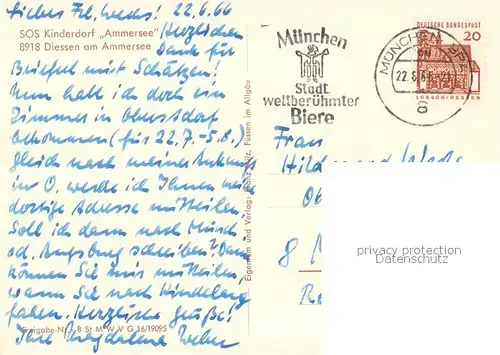 Liebes Frl. Weehs! 22.6.66
SOS Kinderdorf „Ammersee“
8918 Diessen am Ammersee
Herzlichen
Dank für
Brief mit Schätzen!
Nun habe ich doch ein
Zimmer in Oberstdorf
bekommen (für 22.7.-5.8.)
gleich nach meiner Ankunft
in O. werde ich Ihnen meine
dortige Adresse mitteilen.
Soll ich dann nach Münch.
od. Augsburg schreiben? Dann
können Sie mir mitteilen,
wann Sie nach Hindelang
fahren. Herzliche Grüße!
Ihre Magdalena Weber
Freigabe-Nr. B St M W V G 16/19095
Eigentum und Verlag: Franz Milz, Füssen im Allgäu
München
Stadt
weltberühmter
Biere
MÜNCHEN
22.6.66-21
8
DEUTSCHE BUNDESPOST
20
LORSCH/HESSEN
Frau
8
privacy protection
Datenschutz